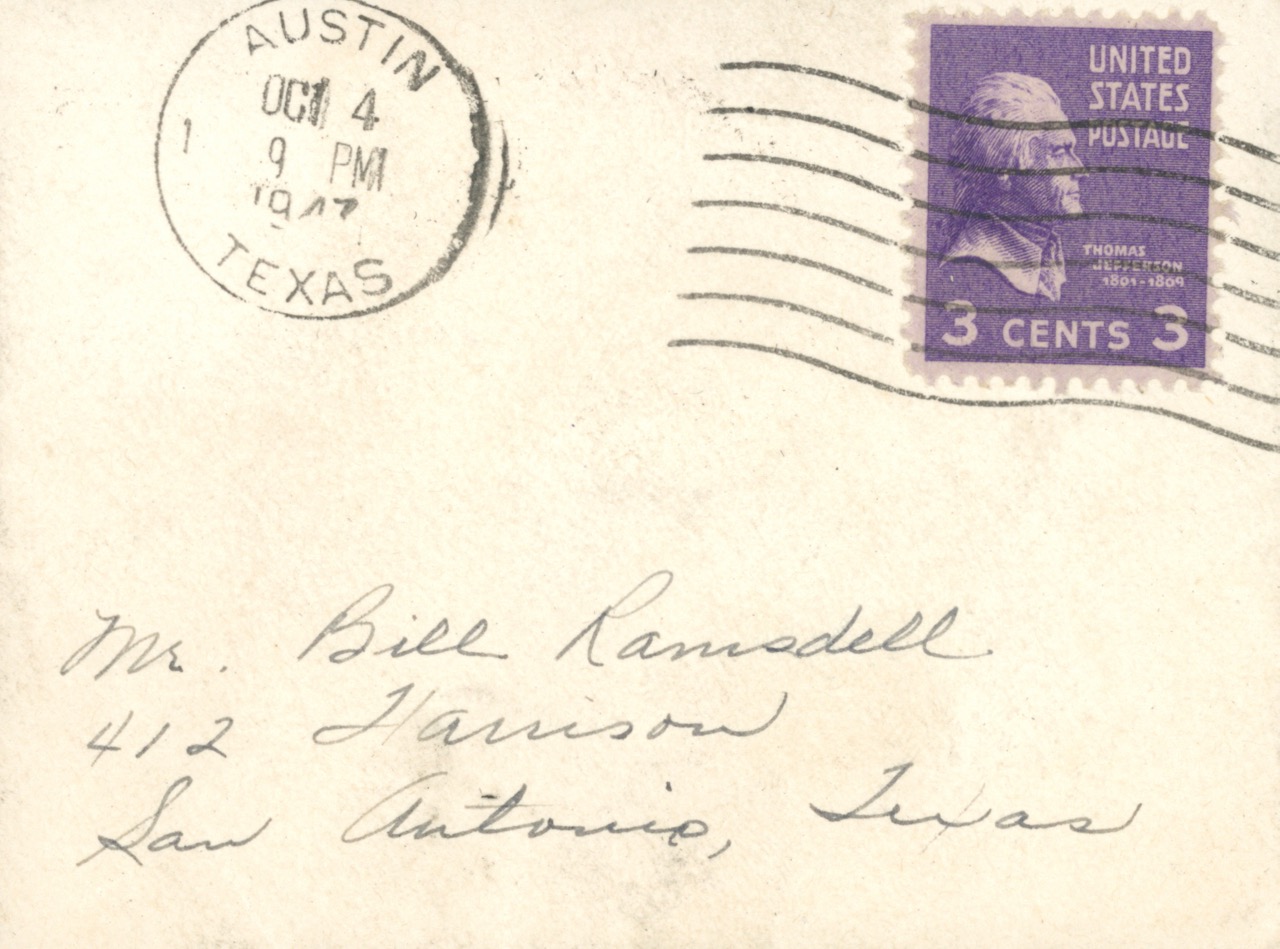 AUSTIN
OCT 4
1
9 PM
1947
TEXAS
UNITED
STATES
POSTAGE
THOMAS
JEFFERSON
1801-1809
3 CENTS 3
Mr. Bill Ramsdell
412 Harrison
San Antonio, Texas